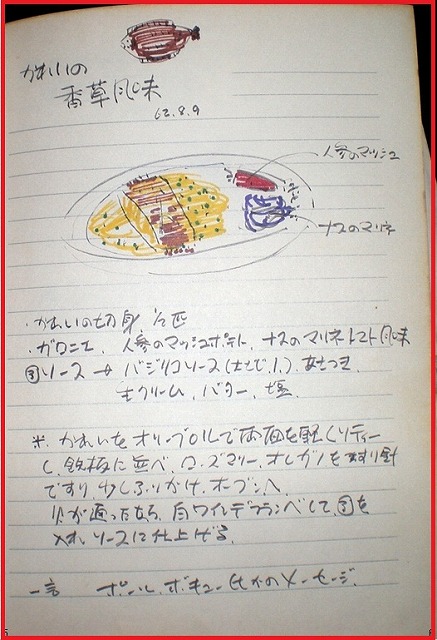 かれいの
香草風味
62.8.9
人参のマッシュ
ナスのマリネ
・かれいの切身 1/2匹
・ガロニエ、人参のマッシュポテト、ナスのマリネトマト風味
ソース → バジリコソース
生クリーム、バター、塩
※ かれいをオリーブOILで両面を軽くソティー
し、鉄板に並べ、ローズマリー、オレガノを
ですり、少しふりかけ、オーブンへ
火が通ったなら、白ワインでフランベして、を
入れ、ソースに仕上げる。
一言 ポール、ボキューズ氏からのメッセージ